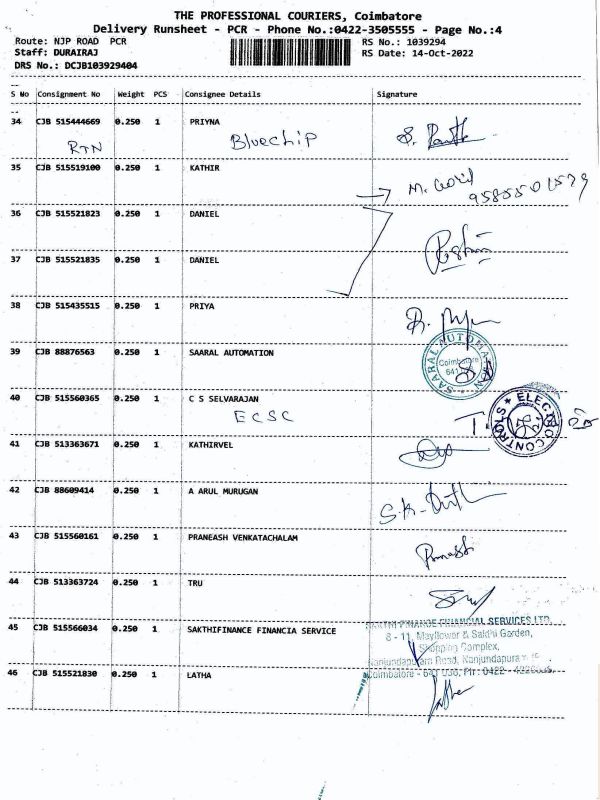 THE PROFESSIONAL COURIERS, Coimbatore
Delivery Runsheet - PCR - Phone No.:0422-3505555 - Page No.:4
Route: NJP ROAD PCR
RS No.: 1039294
Staff: DURAIRAJ
RS Date: 14-Oct-2022
DRS No.: DCJB103929404
S No Consignment No Weight PCS Consignee Details Signature
34 CJB 515444669 0.250 1 PRIYNA
RTN Bluechip
35 CJB 515519100 0.250 1 KATHIR
36 CJB 515521823 0.250 1 DANIEL
37 CJB 515521835 0.250 1 DANIEL
38 CJB 515435515 0.250 1 PRIYA
39 CJB 88876563 0.250 1 SAARAL AUTOMATION
SAARAL AUTOMATION
Coimbatore
641
40 CJB 515560365 0.250 1 C S SELVARAJAN
ECSC
CONTROLS
41 CJB 513363671 0.250 1 KATHIRVEL
42 CJB 88609414 0.250 1 A ARUL MURUGAN
43 CJB 515560161 0.250 1 PRANEASH VENKATACHALAM
44 CJB 513363724 0.250 1 TRU
45 CJB 515566034 0.250 1 SAKTHIFINANCE FINANCIA SERVICE
FINANCIAL SERVICES LTD
8 - 11, Mayflower & Sakthi Garden,
Shopping Complex,
Nanjundapuram Road, Nanjundapuram
Coimbatore - 641 036, Ph : 0422 -
46 CJB 515521830 0.250 1 LATHA